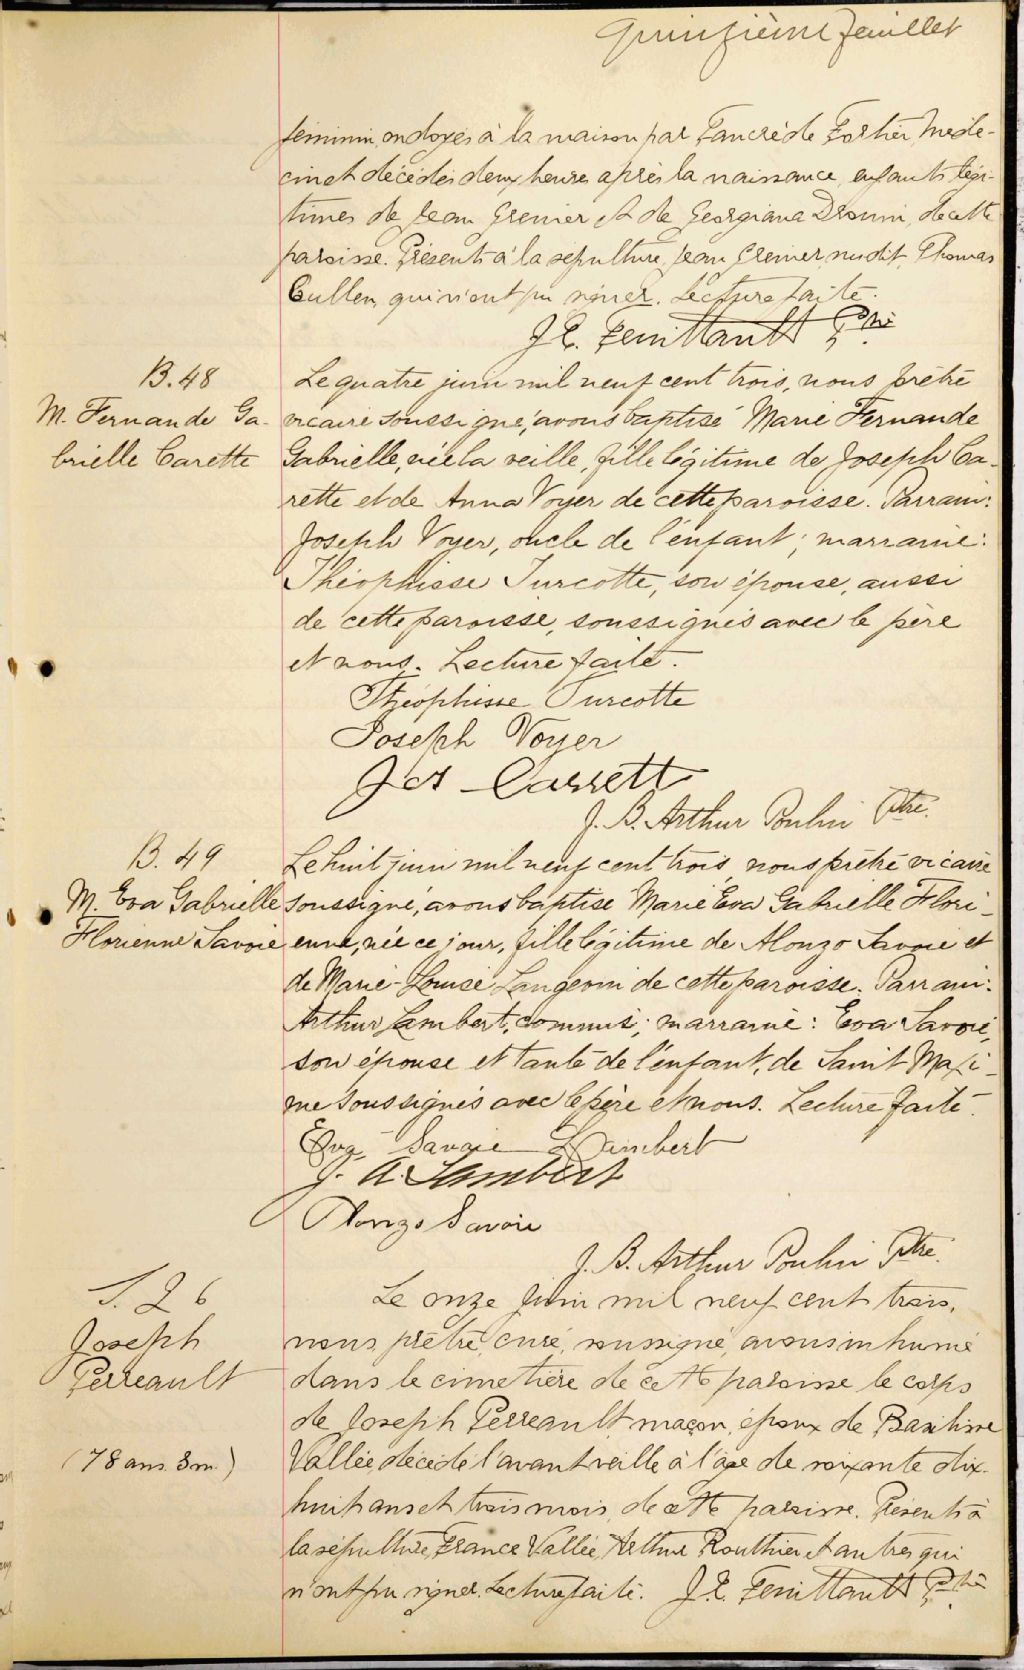 Quinzième feuillet
féminin, ondoyés à la maison par Tancrède Fortier, méde-
cin et décédés deux heures après la naissance, enfants légi-
times de Jean Grenier et de Georgiana Drouin, de cette
paroisse. Présents à la sépulture, Jean Grenier, susdit, Thomas
Cullen, qui n'ont pu signer. Lecture faite.
J. E. Feuiltault Ptre
B. 48
M. Fernande Ga-
brielle Carette
Le quatre juin mil neuf cent trois, nous prêtre
vicaire soussigné, avons baptisé Marie Fernande
Gabrielle, née la veille, fille légitime de Joseph Ca-
rette et de Anna Voyer de cette paroisse. Parrain:
Joseph Voyer, oncle de l'enfant; marraine:
Théophisse Turcotte, son épouse, aussi
de cette paroisse, soussignés avec le père
et nous. Lecture faite.
Théophisse Turcotte
Joseph Voyer
Jos Carrett
J. B. Arthur Poulin Ptre.
B. 49
M. Eva Gabrielle
Florienne Savoie
Le huit juin mil neuf cent trois, nous prêtre vicaire
soussigné, avons baptisé Marie Eva Gabrielle Flori-
enne, née ce jour, fille légitime de Alonzo Savoie et
de Marie-Louise Langevin de cette paroisse. Parrain:
Arthur Lambert, commis; marraine: Eva Savoie,
son épouse et tante de l'enfant, de Saint Maxi-
me soussignés avec le père et nous. Lecture faite.
Eva Savoie Lambert
J. A. Lambert
Alonzo Savoie
J. B. Arthur Poulin Ptre.
S. 26
Joseph
Perreault
(78 ans 3 m.)
Le onze juin mil neuf cent trois,
nous, prêtre, curé, soussigné, avons inhumé
dans le cimetière de cette paroisse le corps
de Joseph Perreault, maçon, époux de Basilisse
Vallée, décédé l'avant veille à l'âge de soixante dix-
huit ans et trois mois, de cette paroisse. Présents à
la sépulture, France Vallée, Arthur Routhier et autres qui
n'ont pu signer. Lecture faite. J. E. Feuiltault Ptre